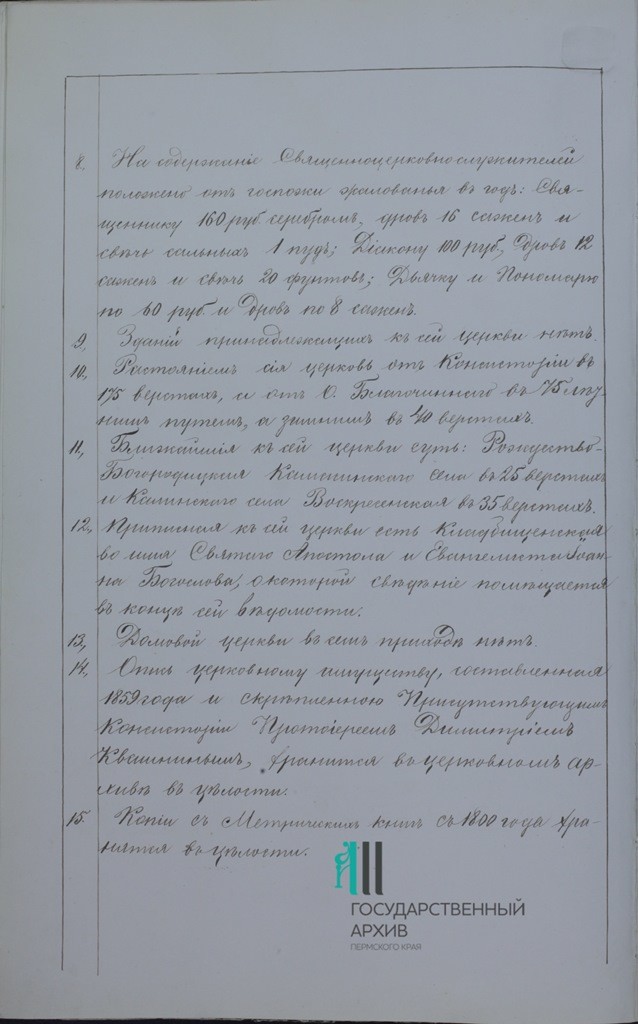 8, На содержаніе Священноцерковнослужителей
положено отъ госпожи жалованья въ годъ: Свя-
щеннику 160 руб серебромъ, дровъ 16 сажен и
свѣчь сальныхъ 1 пудъ; Діакону 100 руб, дровъ 12
сажен и свѣчь 20 фунтовъ; Дьячку и Пономарю
по 60 руб и дровъ по 8 сажен.
9, Зданій принадлежащихъ къ сей церкви нѣтъ.
10, Разстояніемъ сія церковь отъ Консисторіи въ
175 верстахъ, а отъ О. Благочиннаго въ 75 лѣт-
нимъ путемъ, а зимнимъ въ 40 верстахъ.
11, Ближайшія къ сей церкви суть: Рождество-
Богородицкая села въ 25 верстахъ
и Калинскаго села Воскресенская въ 35 верстахъ.
12, Приписная къ сей церкви есть Кладбищенская
во имя Святаго Апостола и Евангелиста Іоан-
на Богослова, о которой свѣдѣніе помѣщается
въ концѣ сей вѣдомости.
13, Домовой церкви въ семъ приходѣ нѣтъ.
14, Опись церковному имуществу, составленная
1859 года и скрѣпленною Присутствующимъ
Консисторіи Протоіереемъ Димитріемъ
Квашнинымъ, хранится въ церковномъ ар-
хивѣ въ цѣлости.
15. Копіи съ Метрическихъ книгъ съ 1800 года хра-
нятся въ цѣлости.
ГОСУДАРСТВЕННЫЙ
АРХИВ
ПЕРМСКОГО КРАЯ